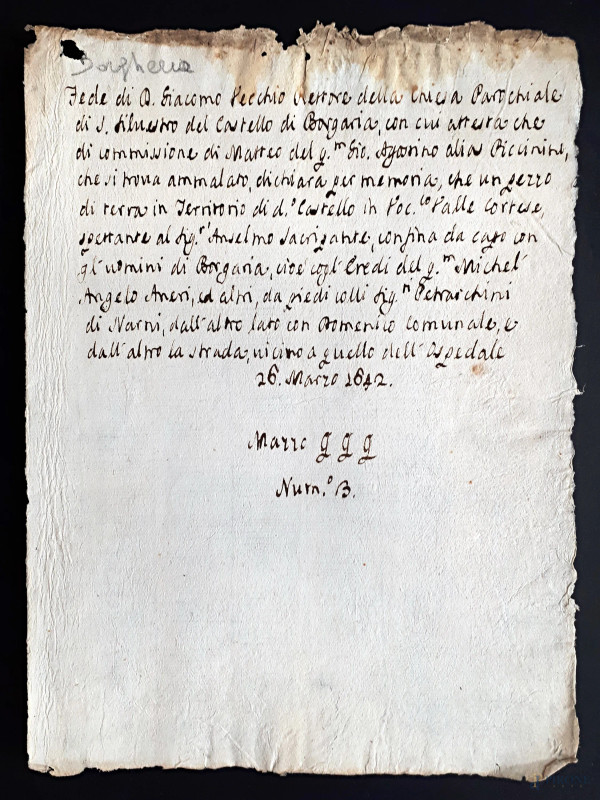 Borgheria
Fede di D. Giacomo Vecchio Rettore della Chiesa Parochiale
di S. Silvestro del Castello di Borgaria, con cui attesta che
di commissione di Matteo del q.m Gio. Agostino alias Piccinini,
che si trova ammalato, dichiara per memoria, che un pezzo
di terra in Territorio di d.o Castello in Voc.lo Valle Cortese,
spettante al Sig.r Anselmo Sacripante, confina da capo con
gl'uomini di Borgaria, cioè cogl'Eredi del q.m Michel'
Angelo Aneri, ed altri, da piedi colli Sig.ri Petrarchini
di Narni, dall'altro lato con Domenico comunale, e
dall'altro la strada, vicino a quello dell'Ospedale
26. Marzo 1642.
Mazzo g g g
Num.o 3.